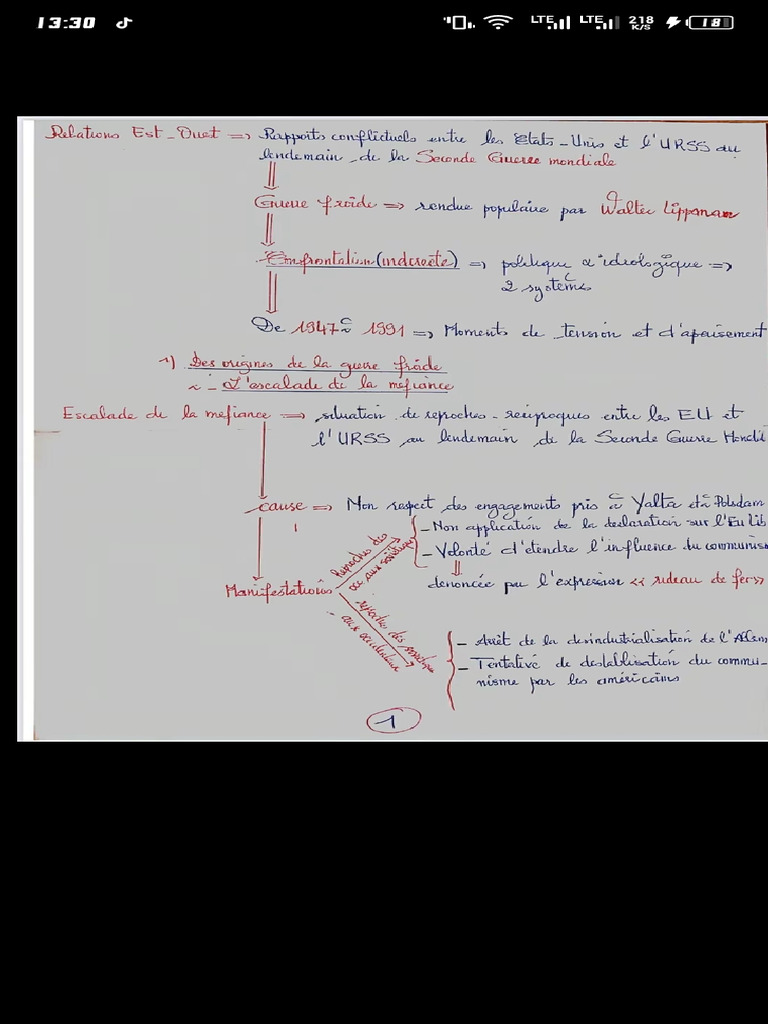 13:30
LTE LTE 218 K/S 18
Relations Est-Ouest => Rapports conflictuels entre les Etats-Unis et l'URSS au
lendemain de la Seconde Guerre mondiale
Guerre froide => rendue populaire par Walter Lippman
Confrontation (indirecte) => politique & idéologique =>
2 systèmes
De 1947 à 1991 => Moments de tension et d'apaisement
1) Des origines de la guerre froide
L'escalade de la méfiance
Escalade de la méfiance => situation de reproches réciproques entre les EU et
l'URSS au lendemain de la Seconde Guerre Mondi
cause => Non respect des engagements pris à Yalta et à Potsdam
- Non application de la déclaration sur l'Eu lib
- Volonté d'étendre l'influence du communism
dénoncée par l'expression << rideau de fer >>
Manifestations
Reproches des
occ aux soviétiques
reproches des soviétiques
aux occidentaux
- Arrêt de la desindustrialisation de l'Allem
- Tentative de destabilisation du commu-
nisme par les américains
1